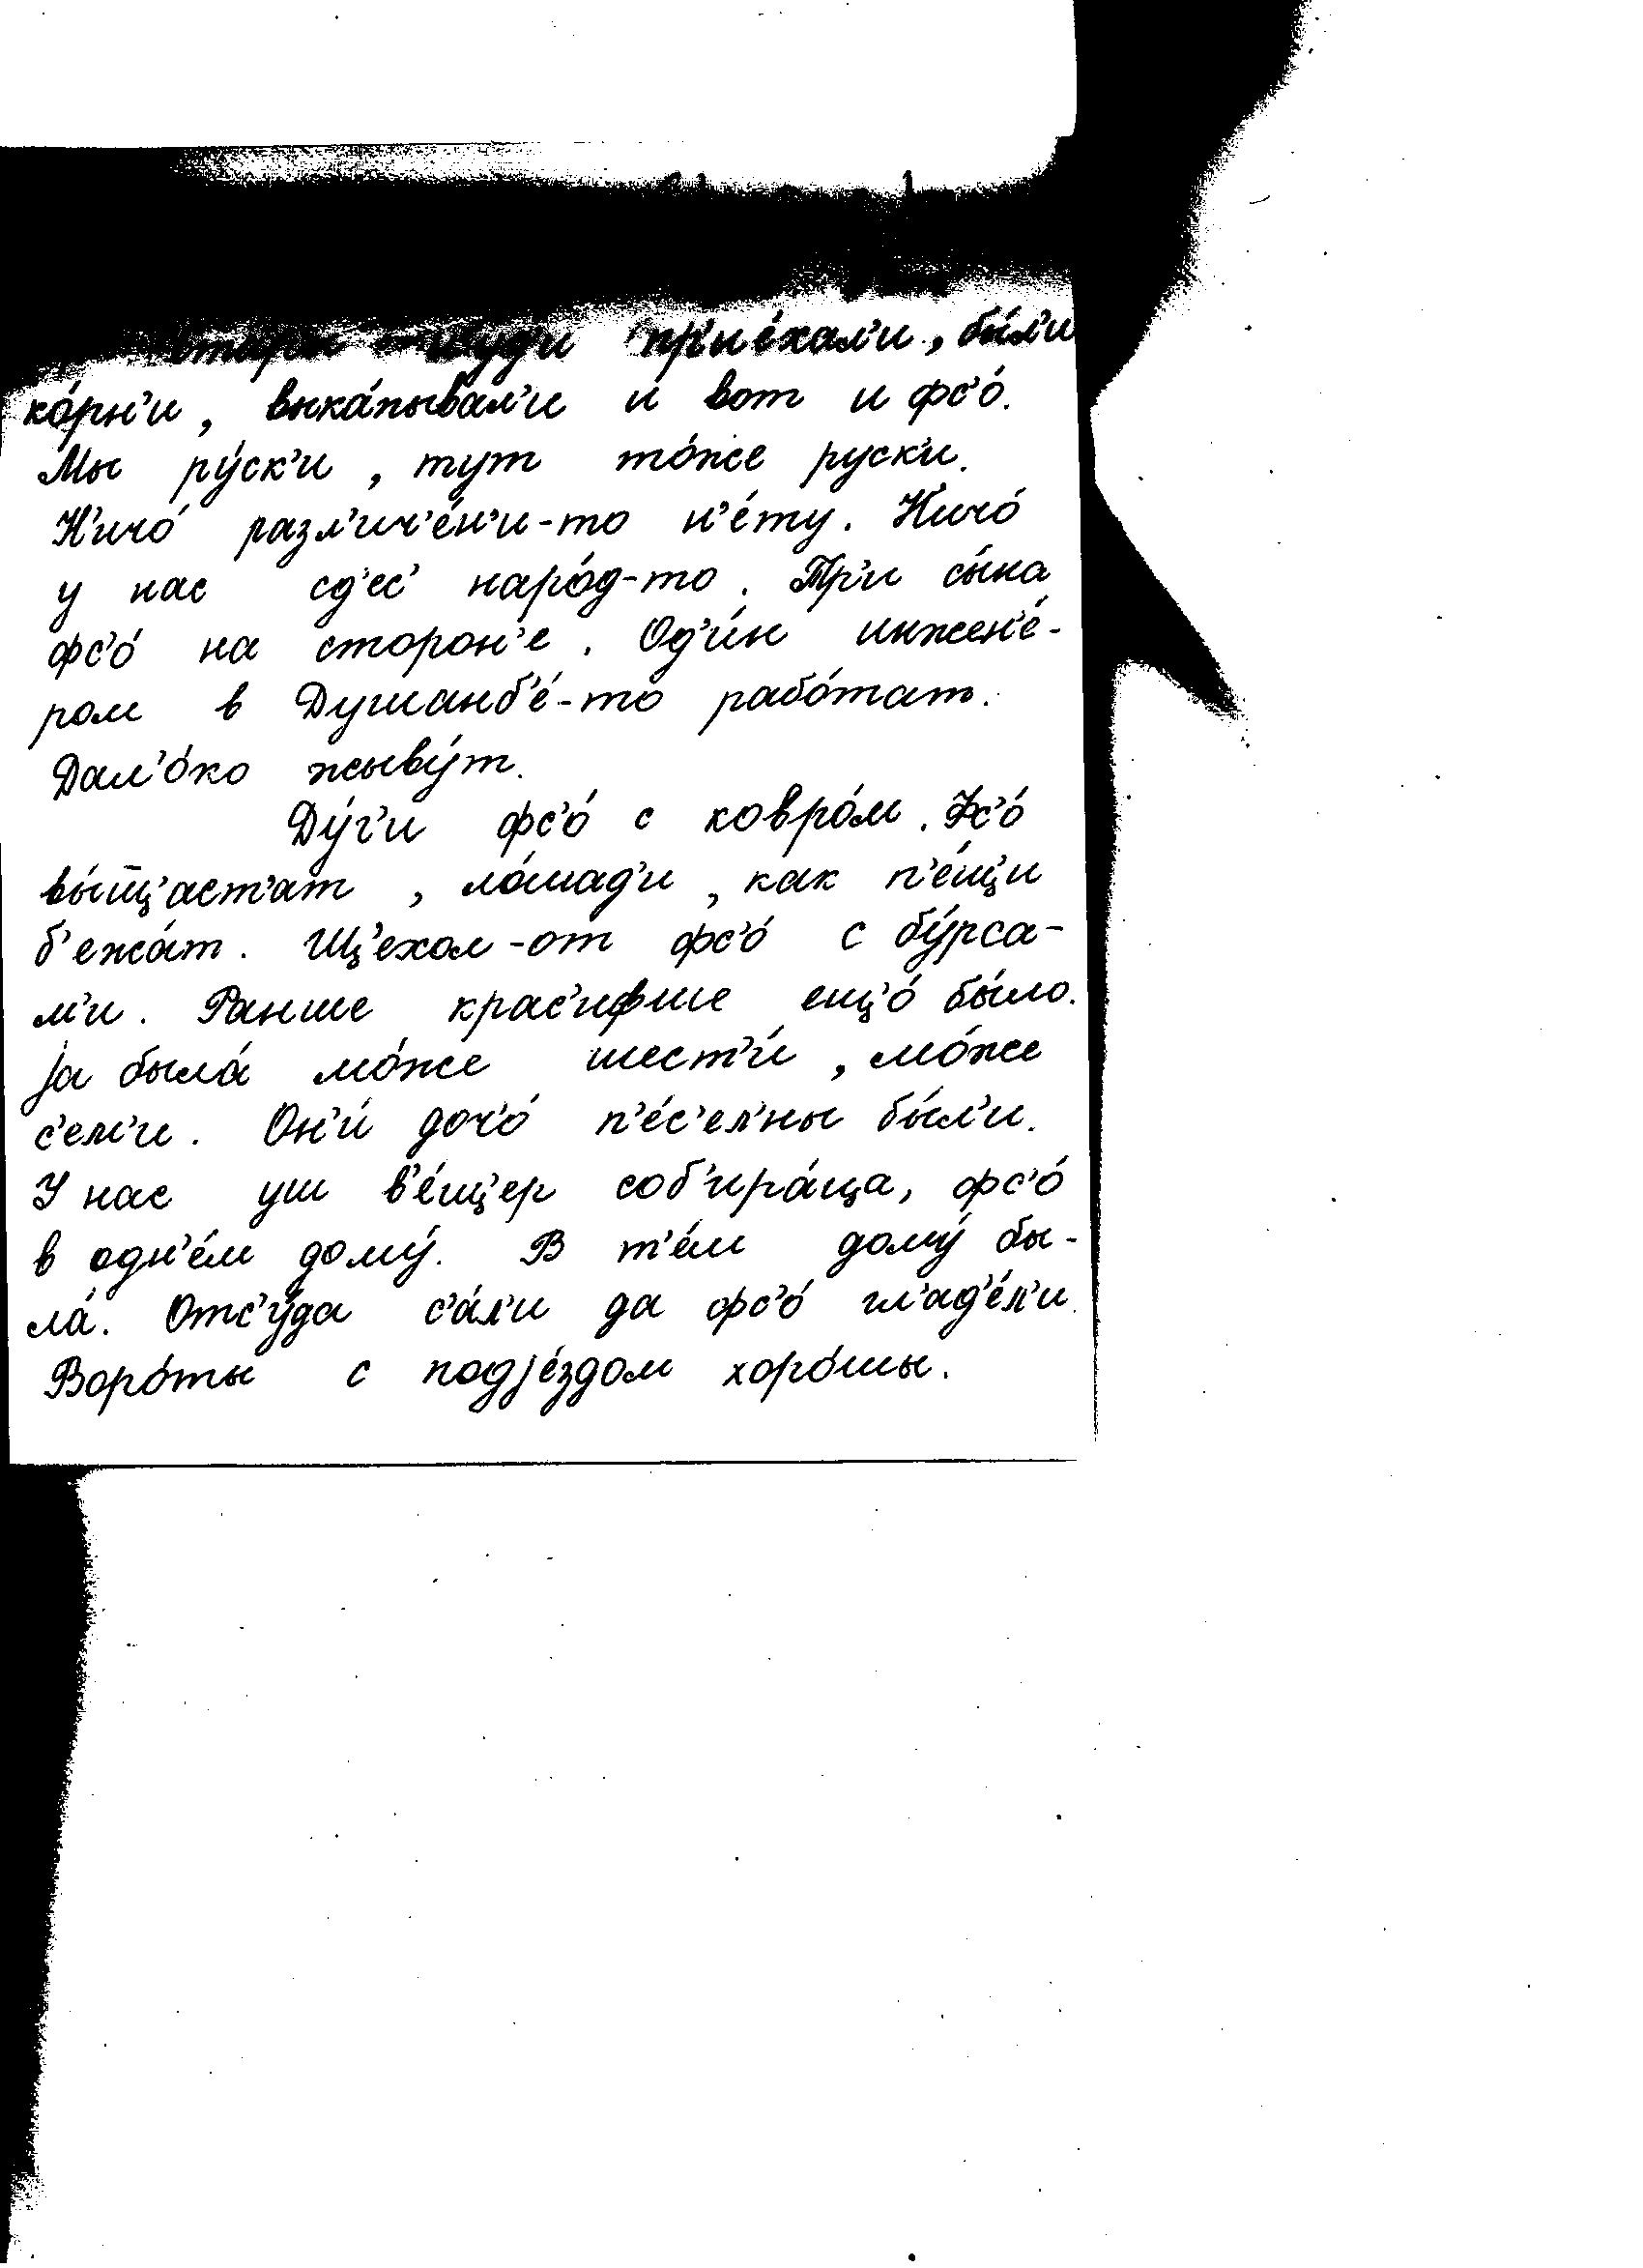 пр'ие́хал'и, бы́л'и
ко́рн'и, выка́пывал'и и вот и фс'о́.
Мы ру́ск'и, тут то́же руск'и.
Н'ичо́ разл'ич'е́н'и-то н'е́ту. Ничо́
у нас сд'ес' наро́д-то. Тр'и сы́на
фс'о́ на сторон'е. Од'и́н инжен'е́-
ром в Душанб'е́-то рабо́тат.
Дал'о́ко жыву́т.
Ду́г'и фс'о́ с ковро́м. Фс'о́
б'ежа́т. Щ'ехол-от фс'о́ с бу́рса-
м'и. Ранше крас'ифше ещ'о́ бы́ло.
jа была́ мо́же шест'и́, мо́же
с'ем'и. Он'и́ доч'о́ п'е́с'ел'ны бы́л'и.
У нас уш в'е́щ'ер соб'ира́ца, фс'о́
в одн'е́м дому́. В т'е́м дому́ бы-
ла́. Отс'у́да с'а́л'и да фс'о́ гл'ад'е́л'и.
Воро́ты с подjе́здом хоро́шы.